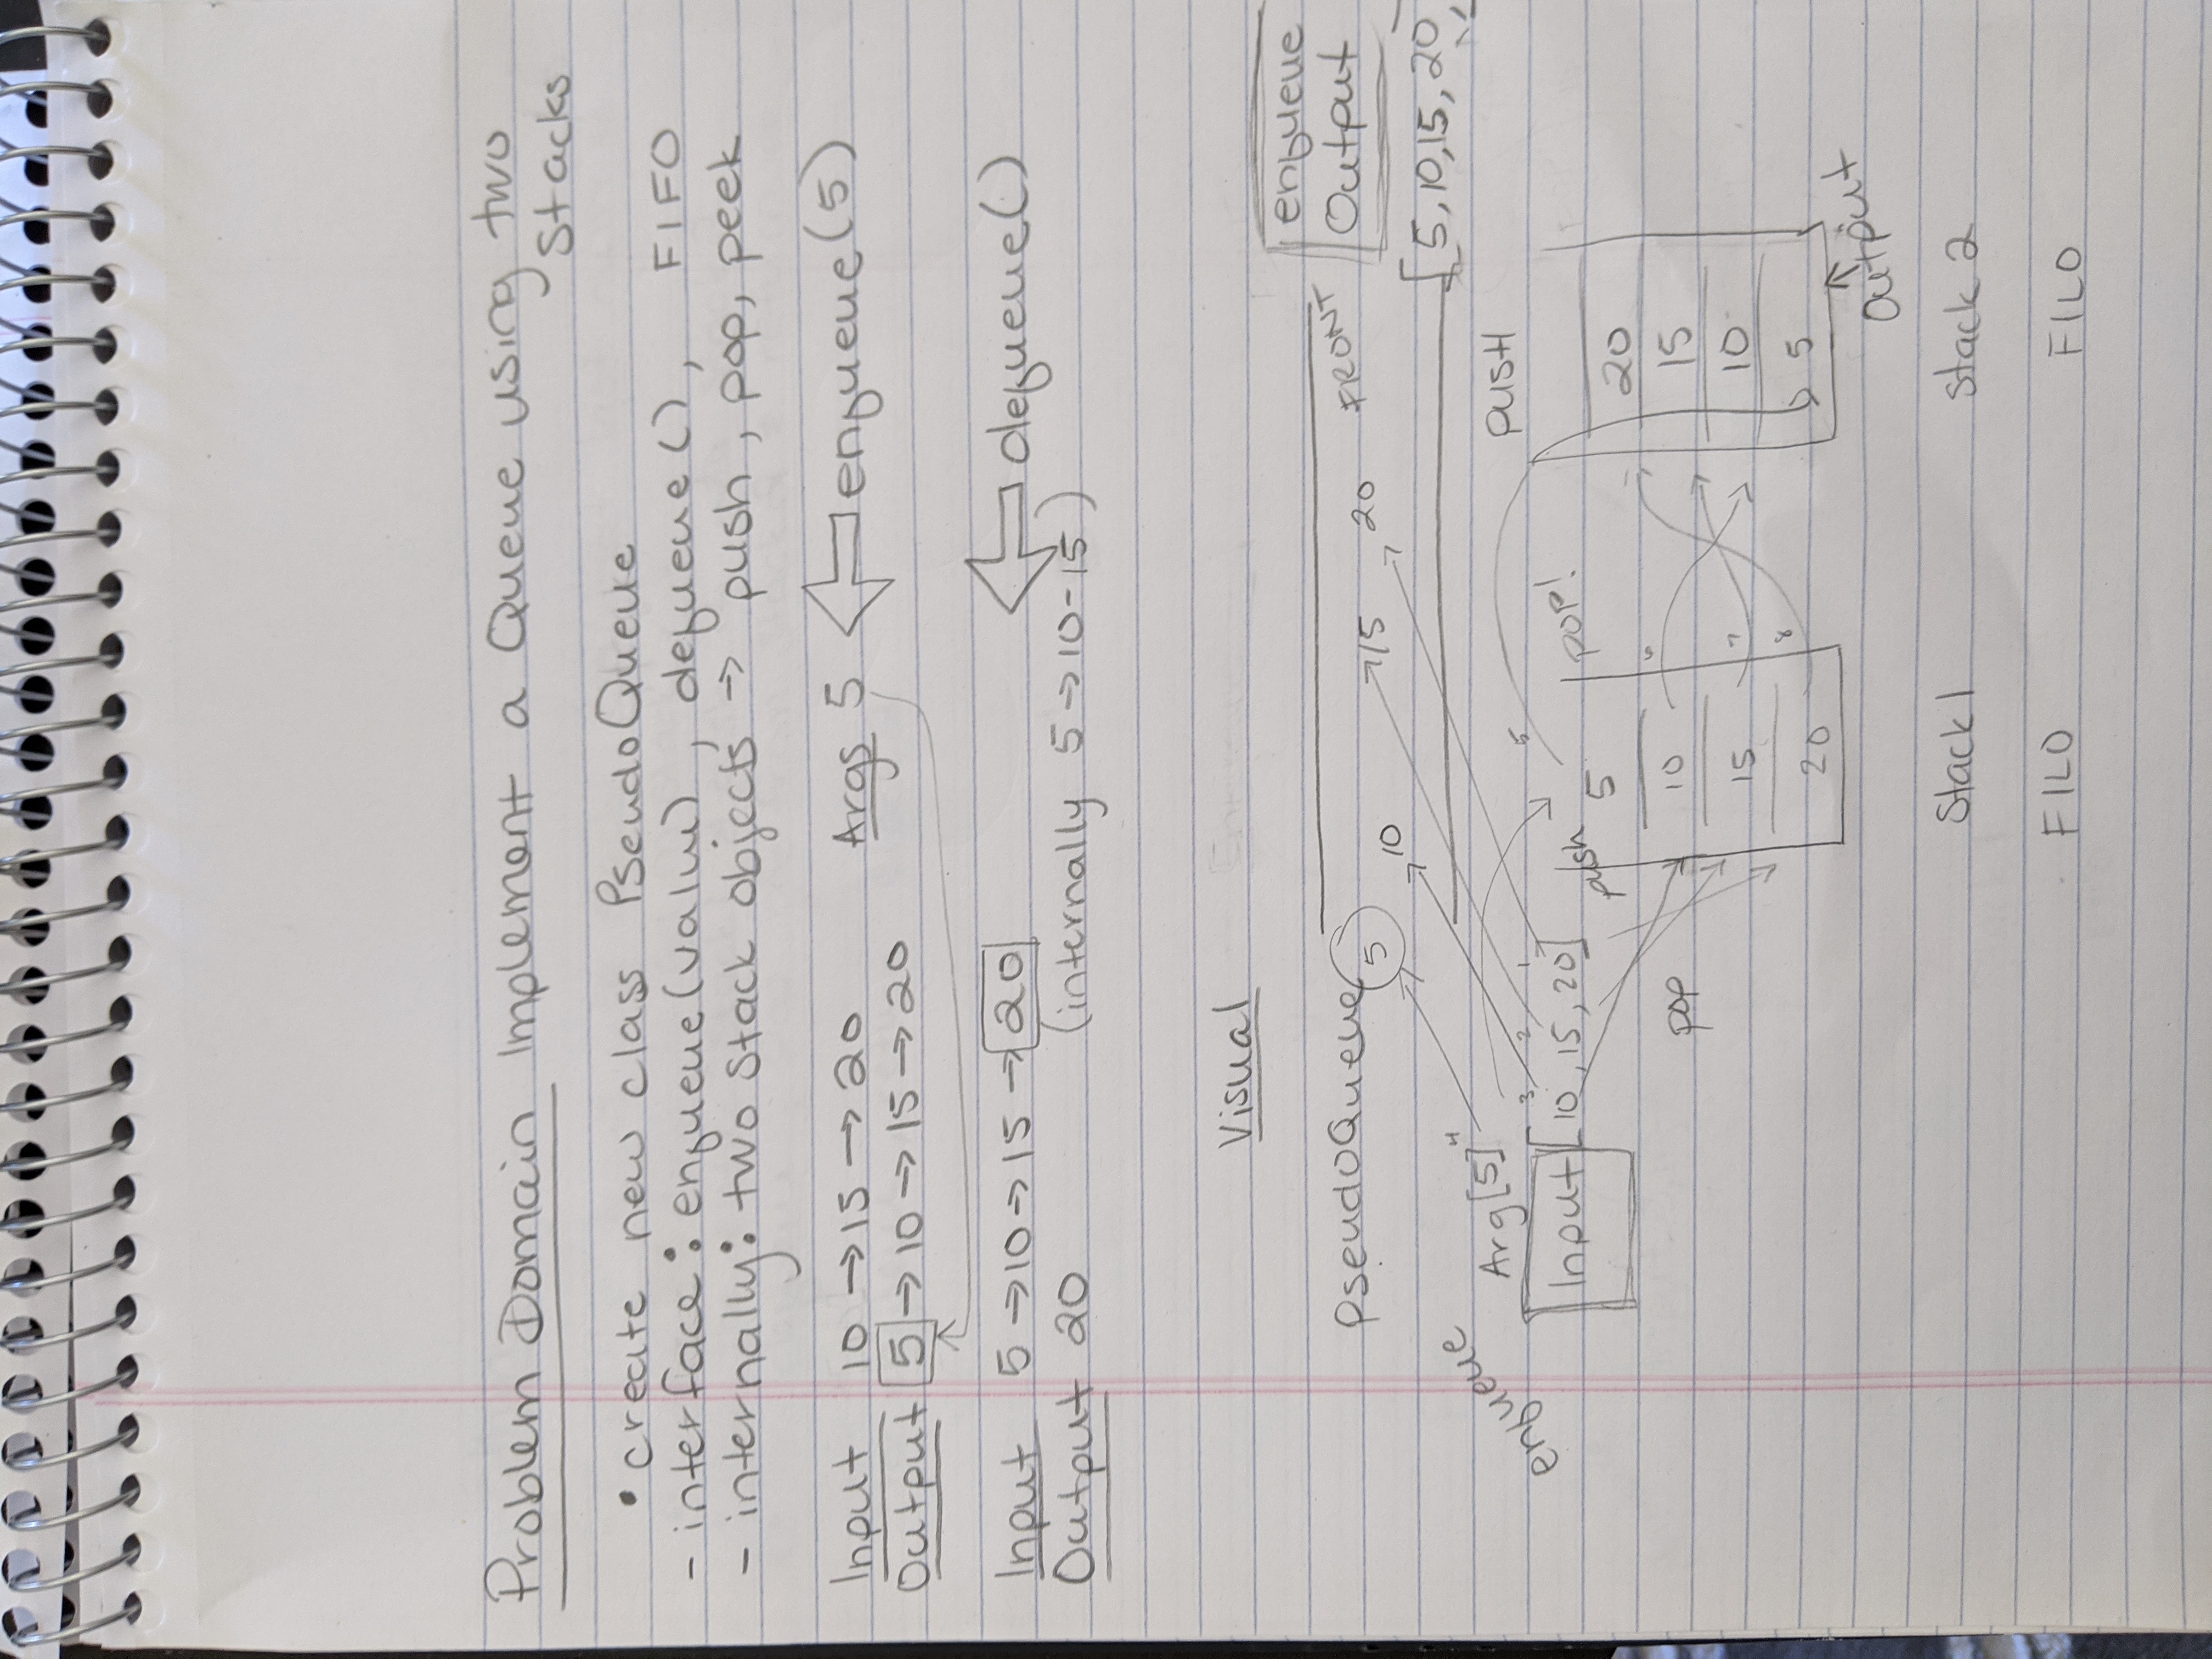 Problem Domain Implement a Queue using two
Stacks
• create new class PseudoQueue
- interface: enqueue(value), dequeue(), FIFO
- internally: two Stack objects → push, pop, peek
Input 10 → 15 → 20 Args 5 enqueue(5)
Output 5 → 10 → 15 → 20
Input 5 → 10 → 15 → 20 dequeue()
Output 20 (internally 5 → 10 - 15)
Visual
enqueue
Output
PseudoQueue 5 10 15 20 FRONT
[5, 10, 15, 20
enqueue
Arg[5] 4
PUSH
3 2 1 5
Input [10, 15, 20] push pop!
5
20
pop
10 6
15
15 7
10
20 8
5
Output
Stack 1 Stack 2
FILO FILO